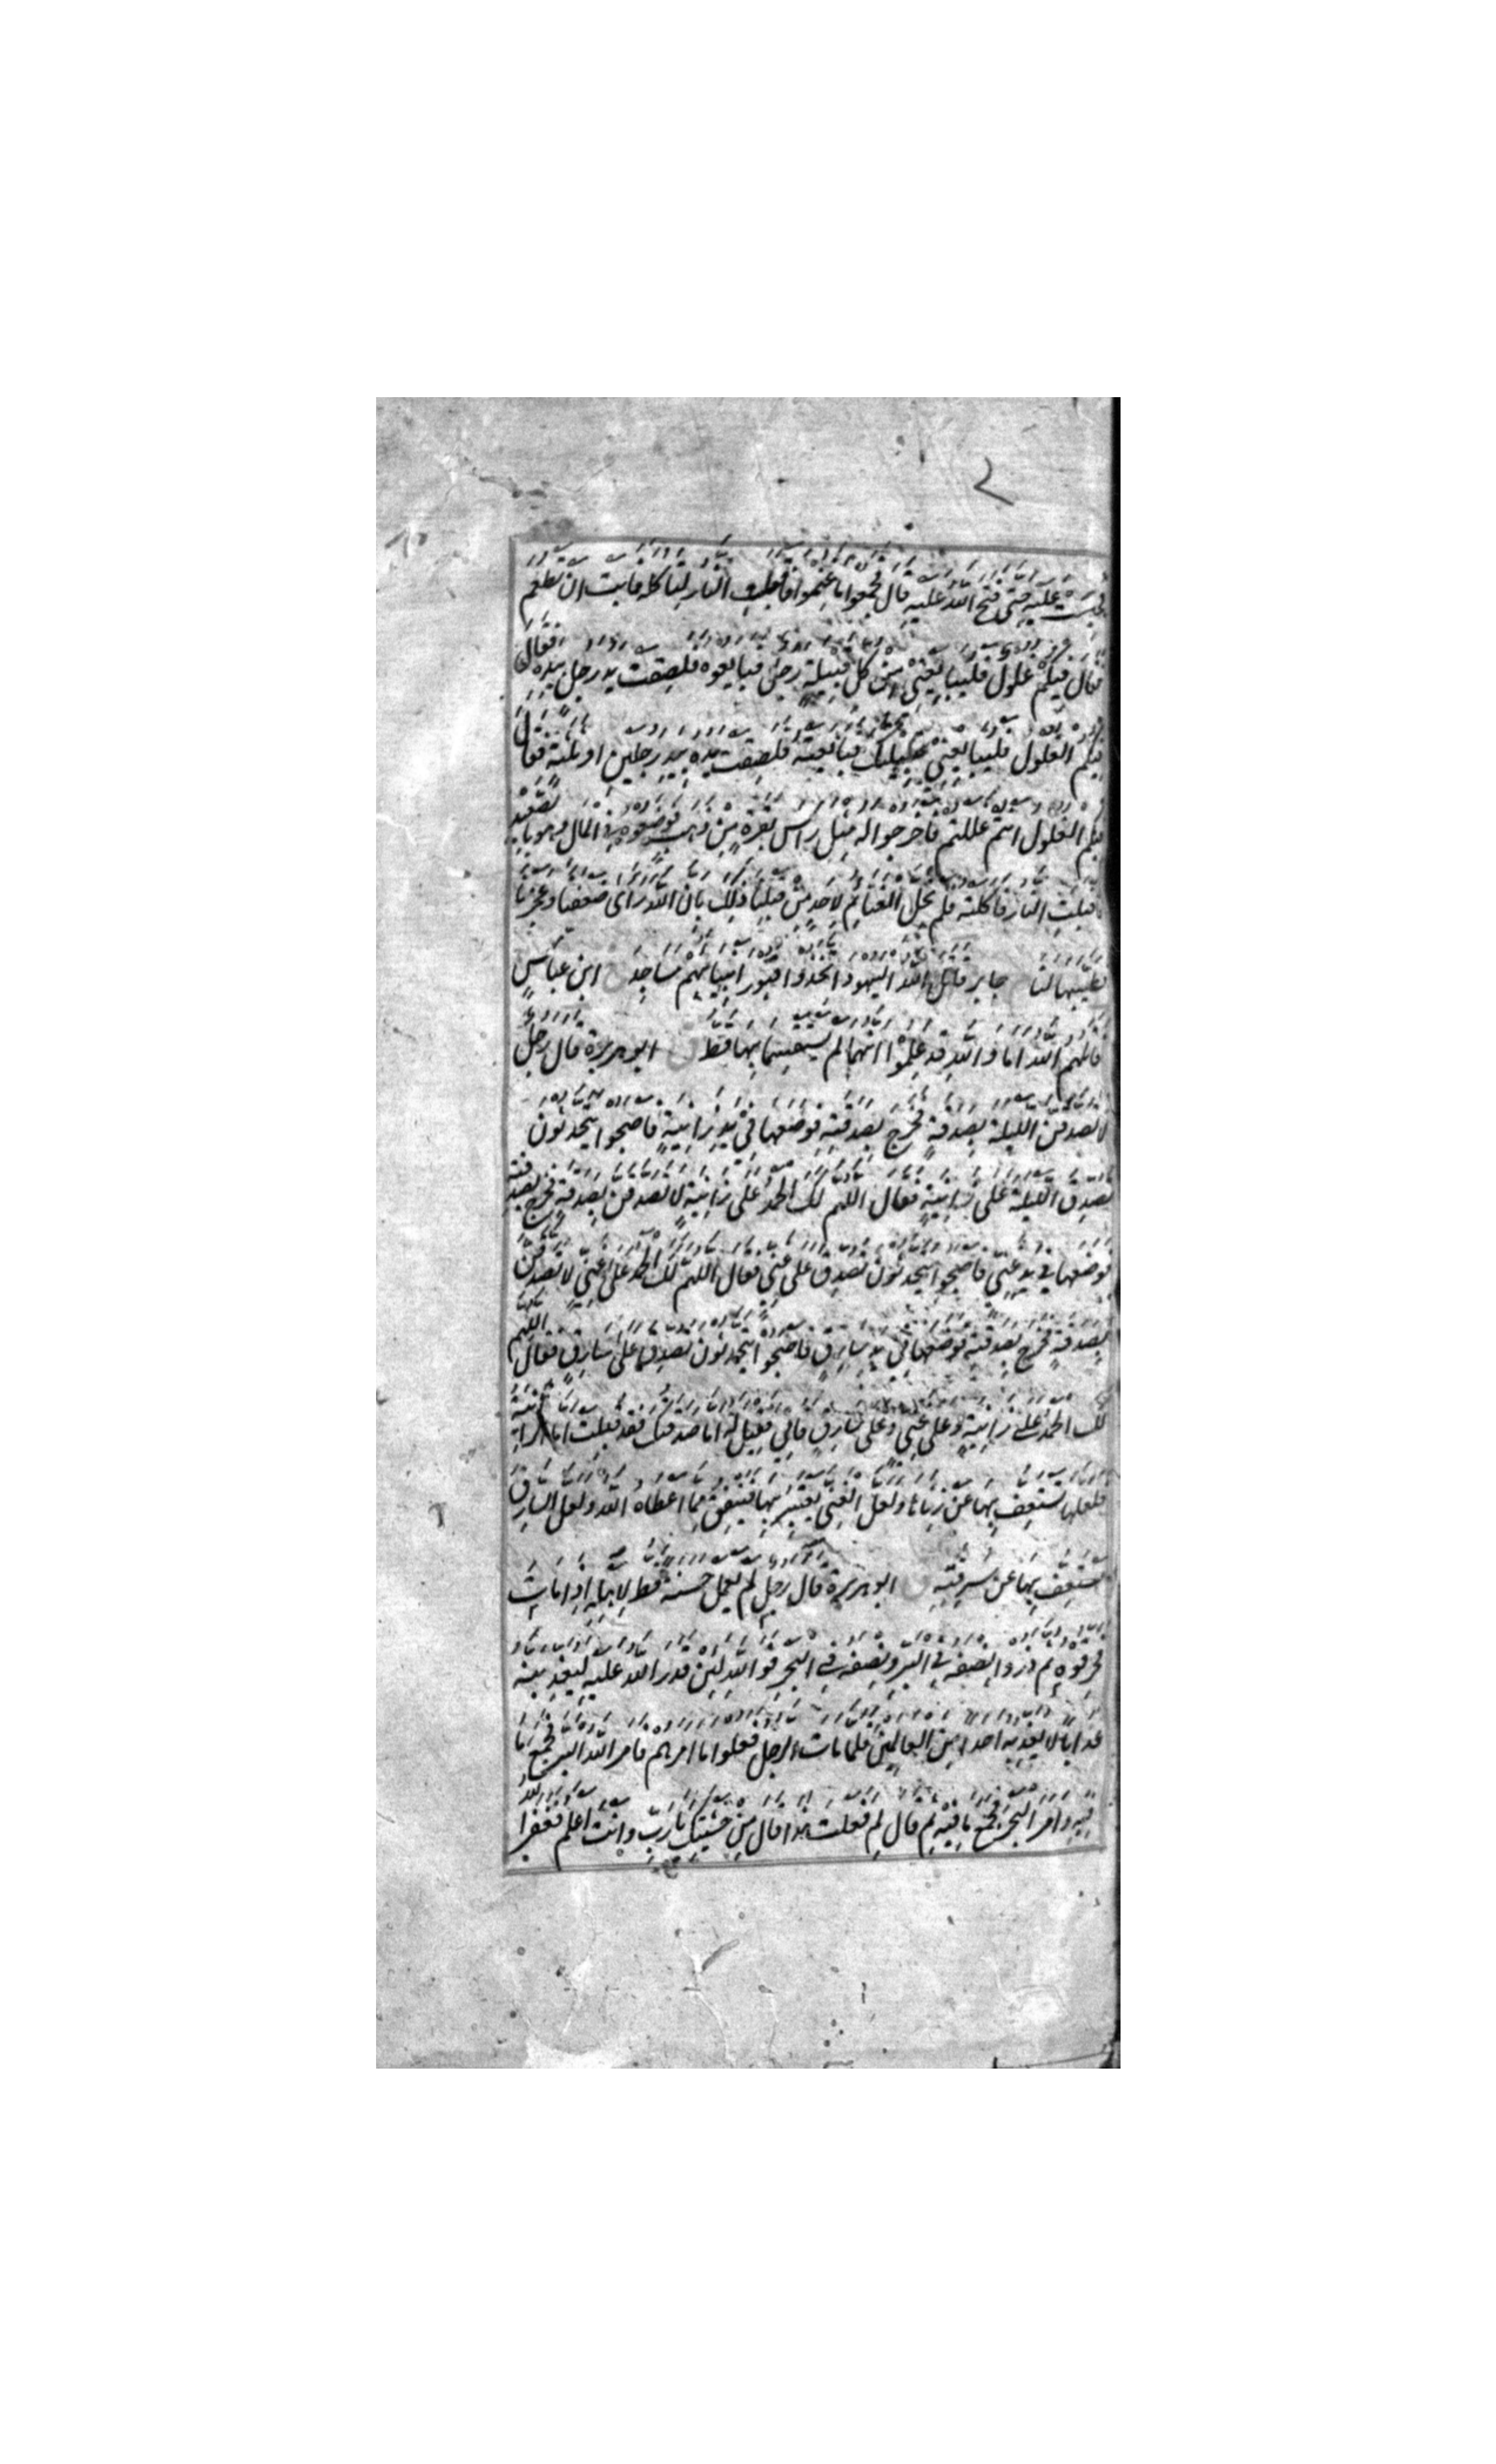 ٢
فحبست عليه حتى فتح الله عليه قال فجمعوا ما غنموا فاقبلت النار لتاكله فابت ان تطعم
فقال فيكم غلول فليبايعني من كل قبيلة رجل فبايعوه فلصقت يد رجل بيده فقال
فيكم الغلول فليبايعني قبيلتك فبايعته فلصقت يده بيد رجلين او ثلثة فقال
فيكم الغلول انتم غللتم فاخرجوا له مثل راس بقرة من ذهب فوضعوه في المال وهو بالصعيد
فاقبلت النار فاكلته فلم يحل الغنائم لاحد من قبلنا ذلك بان الله راى ضعفنا وعجزنا
فطيبها لنا جابر قاتل الله اليهود اتخذوا قبور انبيائهم مساجد خ ابن عباس
قاتلهم الله اما والله قد علموا انهما لم يستقسما بها قط ق ابو هريرة قال رجل
لاتصدقن الليلة بصدقة فخرج بصدقته فوضعها في يد زانية فاصبحوا يتحدثون
تصدق الليلة على زانية فقال اللهم لك الحمد على زانية لاتصدقن بصدقة فخرج بصدقته
فوضعها في يد غني فاصبحوا يتحدثون تصدق على غني فقال اللهم لك الحمد على غني لاتصدقن
بصدقة فخرج بصدقته فوضعها في يد سارق فاصبحوا يتحدثون تصدق على سارق فقال اللهم
لك الحمد على زانية وعلى غني وعلى سارق فاتي فقيل له اما صدقتك فقد قبلت اما الزانية
فلعلها تستعف بها عن زناها ولعل الغني يعتبر بها فينفق مما اعطاه الله ولعل السارق
يستعف بها عن سرقته ق ابو هريرة قال رجل لم يعمل حسنة قط لاهله اذا مات
فحرقوه ثم ذروا نصفه في البر ونصفه في البحر فوالله لئن قدر الله عليه ليعذبنه
عذابا لا يعذبه احدا من العالمين فلما مات الرجل فعلوا ما امرهم فامر الله البر فجمع ما
فيه وامر البحر فجمع ما فيه ثم قال لم فعلت هذا قال من خشيتك يا رب وانت اعلم فغفر الله